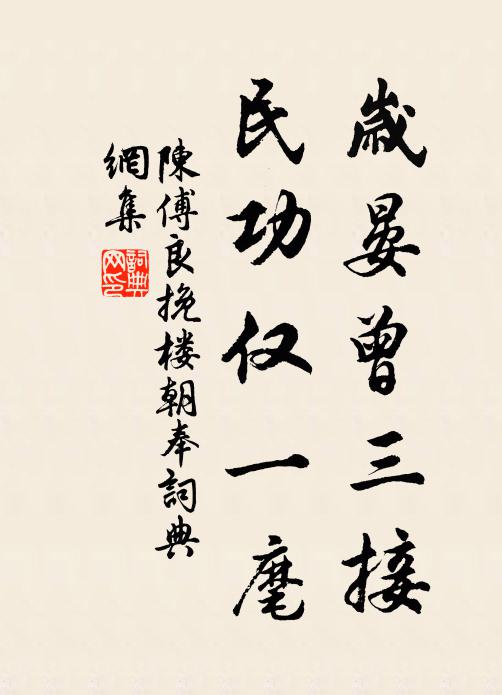 歲晏曾三接
民功仅一麾
陳傅良挽楼朝奉詞典
網集
詞典
网印